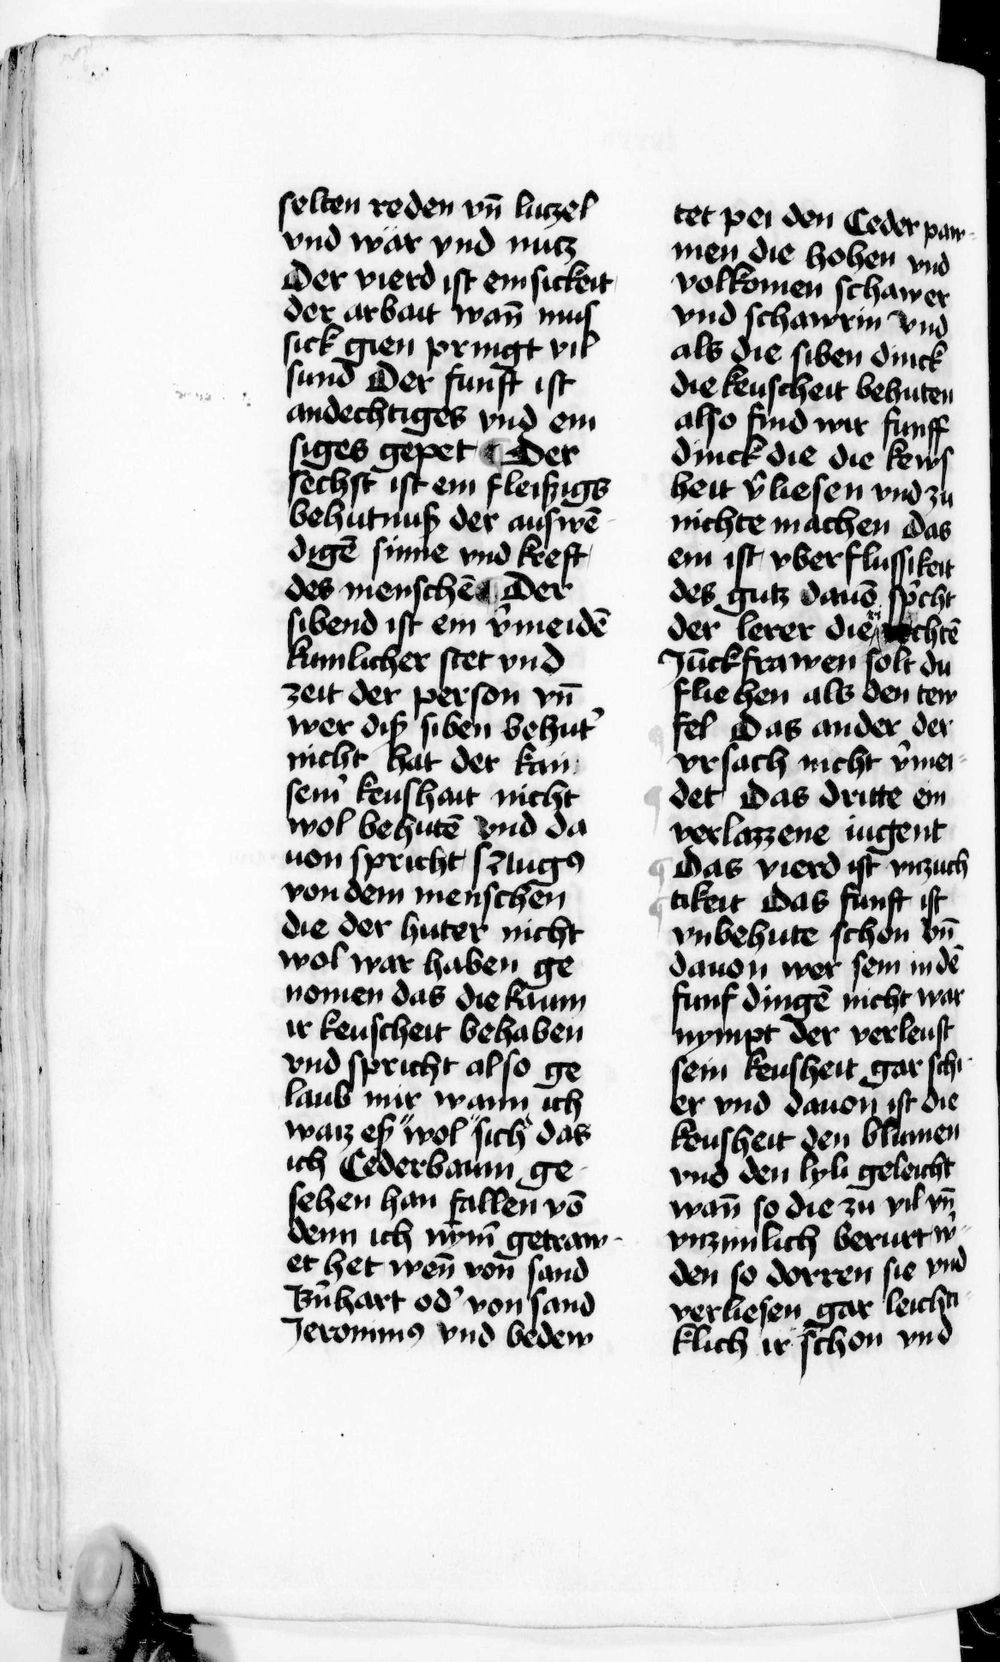 selten reden vn̄ lutzel
vnd wär vnd nutz
Der vierd ist emsickeit
der arbait wan̄ mus
sick gien pringt vil
sund Der funft ist
andechtiges vnd em
siges gepet ¶ Der
sechst ist ein fleiszigs
behutnusz der auswē
digē sinne vnd kreft
des menschē ¶ Der
sibend ist ein v̉meidē
kumlicher stet vnd
zeit der person vn̄
wer disz siben behut̉
nicht hat der kan
sein̉ keushait nicht
wol behutē vnd da
uon spricht s Augꝯ
von dem menschen
die der huter nicht
wol war haben ge
nomen das die kaum
ir keuscheit behaben
vnd spricht also ge
laub mir wann ich
waiz esz wol sich das
ich Cederbaum ge
sehen han fallen vō
denn ich nym̄ getraw-
et het wen̄ von̄ sand
Bn̄hart od̉ von sand
Jeronimꝯ vnd bedew
tet pei den Ceder paw-
men die hohen vnd
volkomen schawer
vnd schawrin vnd
als die siben dinck
die keuscheit behuten
also find wir funff
dinck die die kews
heit v̉liesen vnd zu
nichte machen Das
ein ist vberflussikeit
des gutz dauō sp̉cht
der lerer die chtē
Jūckfrawen solt du
fliehen als den tew
fel Das ander der
vrsach nicht v̉mei-
det Das dritte ein
verlazzene iugent
Das vierd ist vnzuch
tikeit Das funft ist
vnbehute schon vn̄
dauon wer sein in dē
funf dingē nicht war
nympt der verleust
sein keusheit gar schi-
er vnd dauon ist die
keusheit den blumen
vnd den lyli geleicht
wan̄ so die zu vil vn̄
vnzimlich berurt w̉-
den so dorren sie vnd
verliesen gar leichti-
klich ir schon vnd